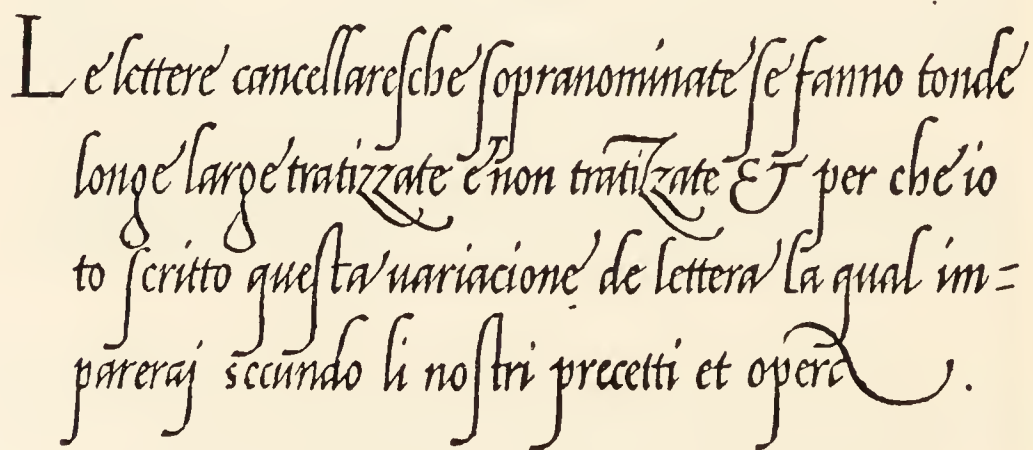 Le lettere cancellaresche sopranominate se fanno tonde
longe large tratizzate e non tratizzate & per che io
to scritto questa uariacione de lettera la qual im=
pareraj secundo li nostri precetti et opere .